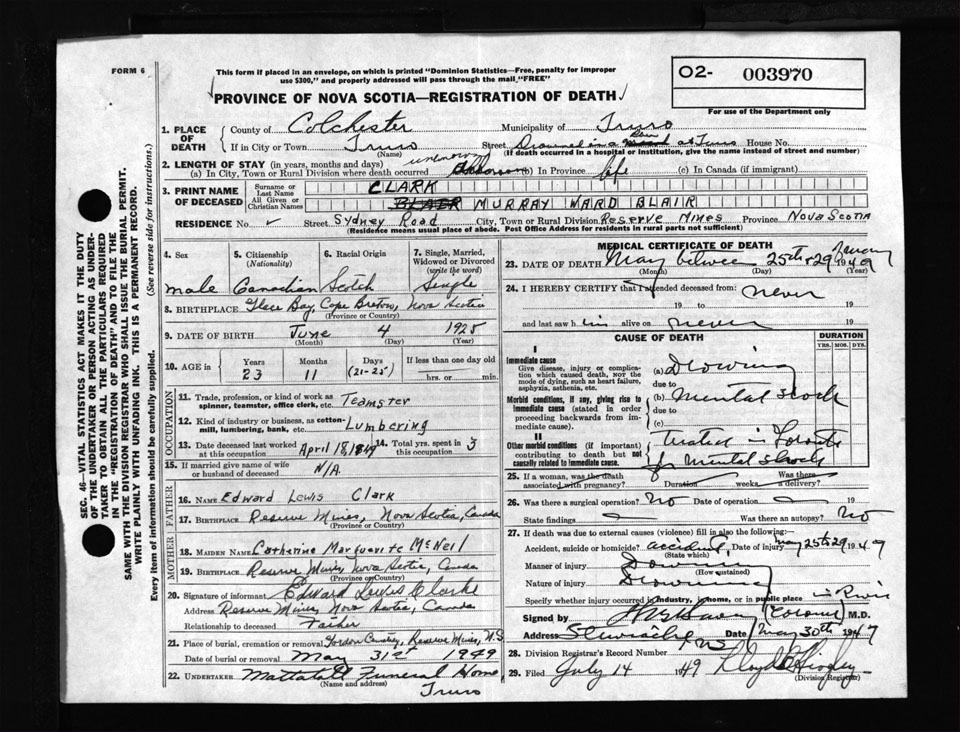 FORM 6
This form if placed in an envelope, on which is printed "Dominion Statistics—Free, penalty for improper
use $300," and properly addressed will pass through the mail "FREE"
PROVINCE OF NOVA SCOTIA—REGISTRATION OF DEATH
O2- 003970
For use of the Department only
SEC. 46—VITAL STATISTICS ACT MAKES IT THE DUTY
OF THE UNDERTAKER OR PERSON ACTING AS UNDER-
TAKER TO OBTAIN ALL THE PARTICULARS REQUIRED
IN THE "REGISTRATION OF DEATH" AND TO FILE THE
SAME WITH THE DIVISION REGISTRAR WHO SHALL ISSUE THE BURIAL PERMIT.
WRITE PLAINLY WITH UNFADING INK. THIS IS A PERMANENT RECORD.
Every item of information should be carefully supplied. (See reverse side for instructions.)
1. PLACE OF DEATH
County of Colchester Municipality of Truro
If in City or Town Truro Street Drowned in a at Truro House No.
(Name) (If death occurred in a hospital or institution, give the name instead of street and number)
2. LENGTH OF STAY (in years, months and days) unknown
(a) In City, Town or Rural Division where death occurred (b) In Province life (c) In Canada (if immigrant)
3. PRINT NAME OF DECEASED
Surname or Last Name CLARK
All Given or Christian Names BLAIR MURRAY WARD BLAIR
RESIDENCE No. Street Sydney Road City, Town or Rural Division Reserve Mines Province Nova Scotia
(Residence means usual place of abode. Post Office Address for residents in rural parts not sufficient)
4. Sex male
5. Citizenship (Nationality) Canadian
6. Racial Origin Scotch
7. Single, Married, Widowed or Divorced (write the word) Single
8. BIRTHPLACE Glace Bay, Cape Breton, Nova Scotia
(Province or Country)
9. DATE OF BIRTH June 4 1925
(Month) (Day) (Year)
10. AGE in Years 23 Months 11 Days (21-25) If less than one day old hrs. or min.
OCCUPATION
11. Trade, profession, or kind of work as spinner, teamster, office clerk, etc. Teamster
12. Kind of industry or business, as cotton-mill, lumbering, bank, etc. Lumbering
13. Date deceased last worked at this occupation April 18, 1949
14. Total yrs. spent in 3
15. If married give name of wife or husband of deceased N/A
FATHER
16. NAME Edward Lewis Clark
17. BIRTHPLACE Reserve Mines, Nova Scotia, Canada
(Province or Country)
MOTHER
18. MAIDEN NAME Catherine Marguerite McNeil
19. BIRTHPLACE Reserve Mines Nova Scotia, Canada
(Province or Country)
20. Signature of informant Edward Lewis Clarke
Address Reserve Mines, Nova Scotia, Canada
Relationship to deceased Father
21. Place of burial, cremation or removal Reserve Mines, N.S
Date of burial or removal May 31st 1949
22. UNDERTAKER Mattatall Funeral Home
(Name and address) Truro
MEDICAL CERTIFICATE OF DEATH
23. DATE OF DEATH May 25th & 29 1949
(Month) (Day) (Year)
24. I HEREBY CERTIFY that I attended deceased from: never
19 to 19
and last saw him alive on never 19
CAUSE OF DEATH
DURATION
YRS. MOS. DYS.
I
Immediate cause
Give disease, injury or complication which caused death, NOT the mode of dying, such as heart failure, asphyxia, asthenia, etc.
(a) Drowning
due to
Morbid conditions, if any, giving rise to immediate cause (stated in order proceeding backwards from immediate cause).
(b) Mental
due to
(c)
II
Other morbid conditions (if important) contributing to death but not causally related to immediate cause.
treated in Toronto
for mental
25. If a woman, was the death associated with pregnancy? Duration weeks Was there a delivery?
26. Was there a surgical operation? NO Date of operation 19
State findings Was there an autopsy? NO
27. If death was due to external causes (violence) fill in also the following:
Accident, suicide or homicide? accident, Date of injury May 25th 29 1949
(State which)
Manner of injury Drowning
(How sustained)
Nature of injury Drowning
Specify whether injury occurred in industry, in home, or in public place in River
Signed by (Coroner) M.D.
Address Stewiacke NS Date May 30th 1947
28. Division Registrar's Record Number
29. Filed July 14 1949 Lloyd
(Division Registrar)